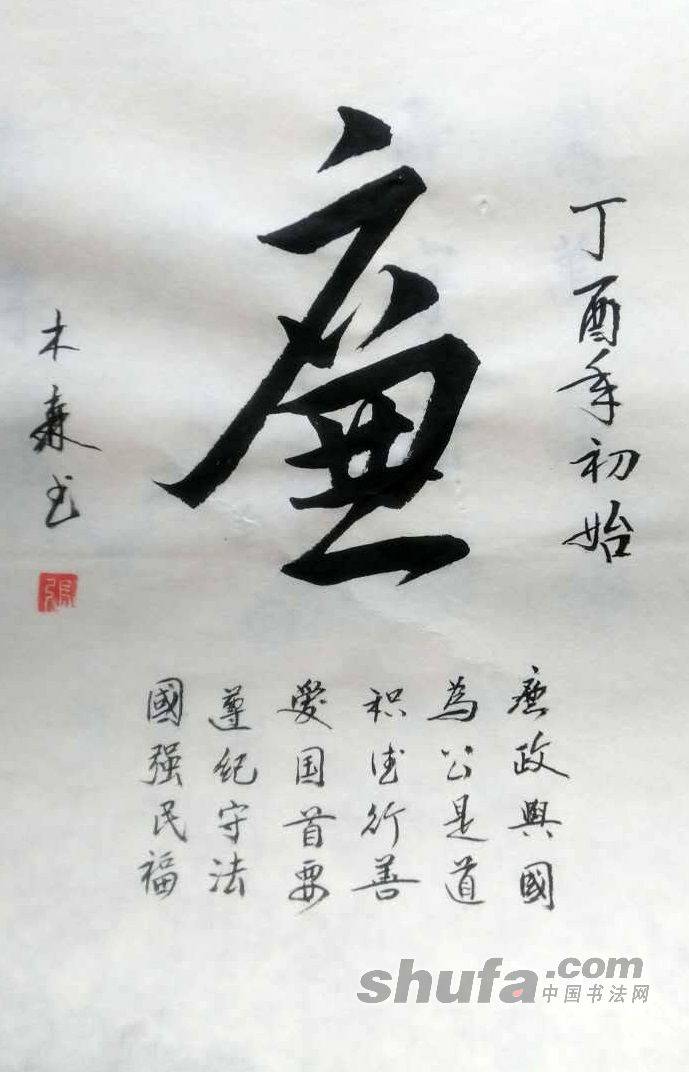 丁酉年初始
廉
廉政與國
為公是道
积德行善
愛国首要
遵纪守法
國强民福
木森书
張
shufa.com
中国书法网